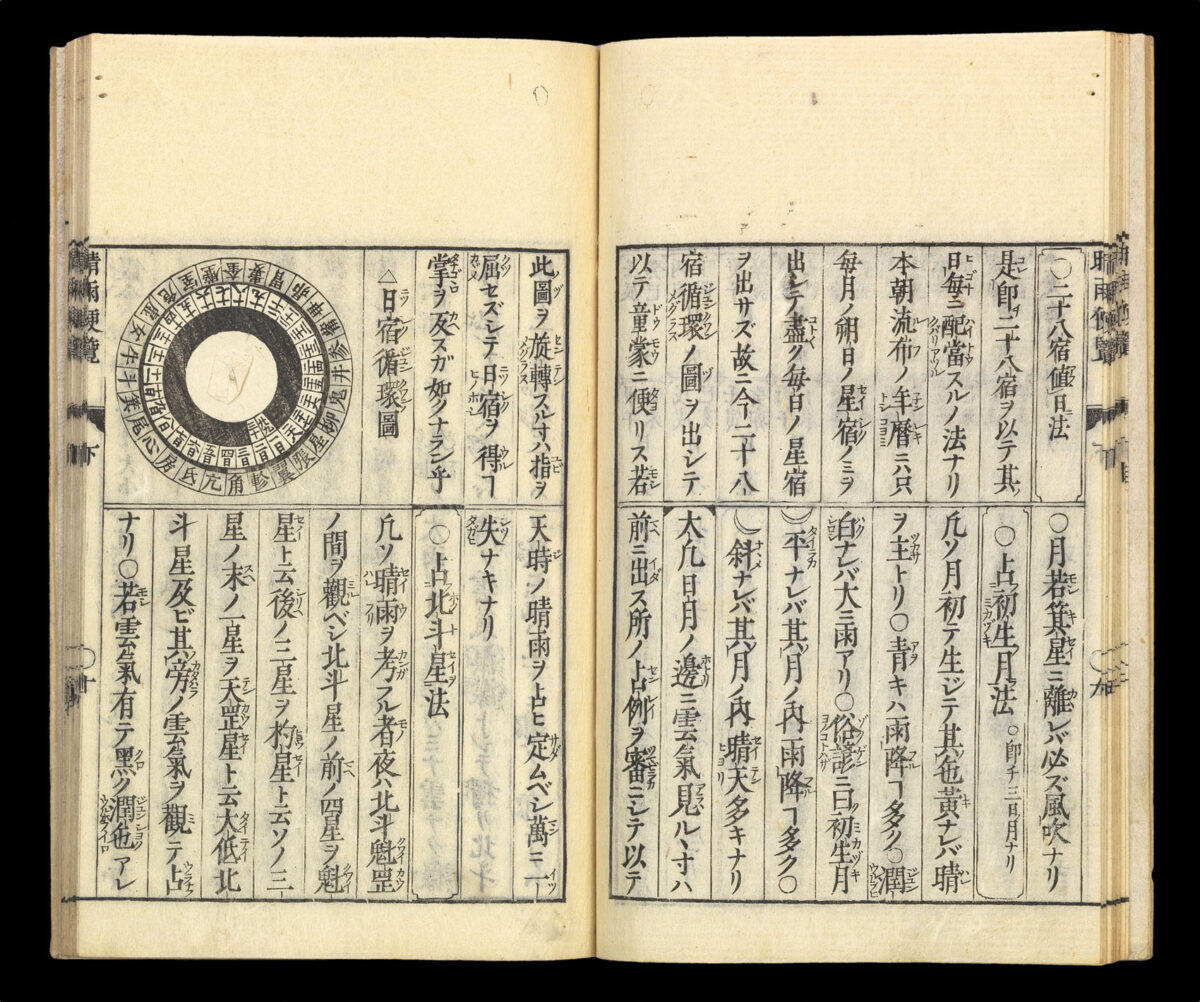 晴雨便覧
〇九
〇二十八宿値日法
是即二十八宿ヲ以テ其
日毎ニ配當スルノ法ナリ
本朝流布ノ年暦ニ只
毎月ノ朔日ノ星宿ノミヲ
出シテ盡ク毎日ノ星宿
ヲ出サズ故ニ今二十八
宿循環ノ圖ヲ出シテ
以テ童蒙ニ便リス若
此圖ヲ旋轉スル寸ハ指ヲ
屈セズシテ日宿ヲ得ヿ
掌ヲ反スガ如クナラン乎
△日宿循環圖
角亢氐房心尾箕斗牛女虚危室壁奎婁胃昴畢觜參井鬼柳星張翼軫
〇月若箕星ニ離レバ必ズ風吹ナリ
〇占初生月法 〇即チ三日月ナリ
凡ソ月初テ生ジテ其色黄ナレバ晴
ヲ主トリ〇青キハ雨降ヿ多ク〇潤
白ナレバ大ニ雨アリ〇俗諺ニ曰初生月
平ナレバ其月ノ内雨降ヿ多ク〇
斜ナレバ其月ノ内晴天多キナリ
大凡日月ノ邊ニ雲氣見ルヽ寸ハ
前ニ出ス所ノ占例ヲ審ニシテ以テ
天時ノ晴雨ヲ占ヒ定ムベシ萬ニ一
失ナキナリ
〇占北斗星法
凡ソ晴雨ヲ考スル者夜ハ北斗魁罡
ノ間ヲ觀ベシ北斗星ノ前ノ四星ヲ魁
星ト云後ノ三星ヲ杓星ト云ソノ三
星ノ末ノ一星ヲ天罡星ト云大低北
斗星及ビ其旁ノ雲氣ヲ觀テ占
ナリ〇若雲氣有テ黑ク潤色アレ
晴雨便覧
下
〇十